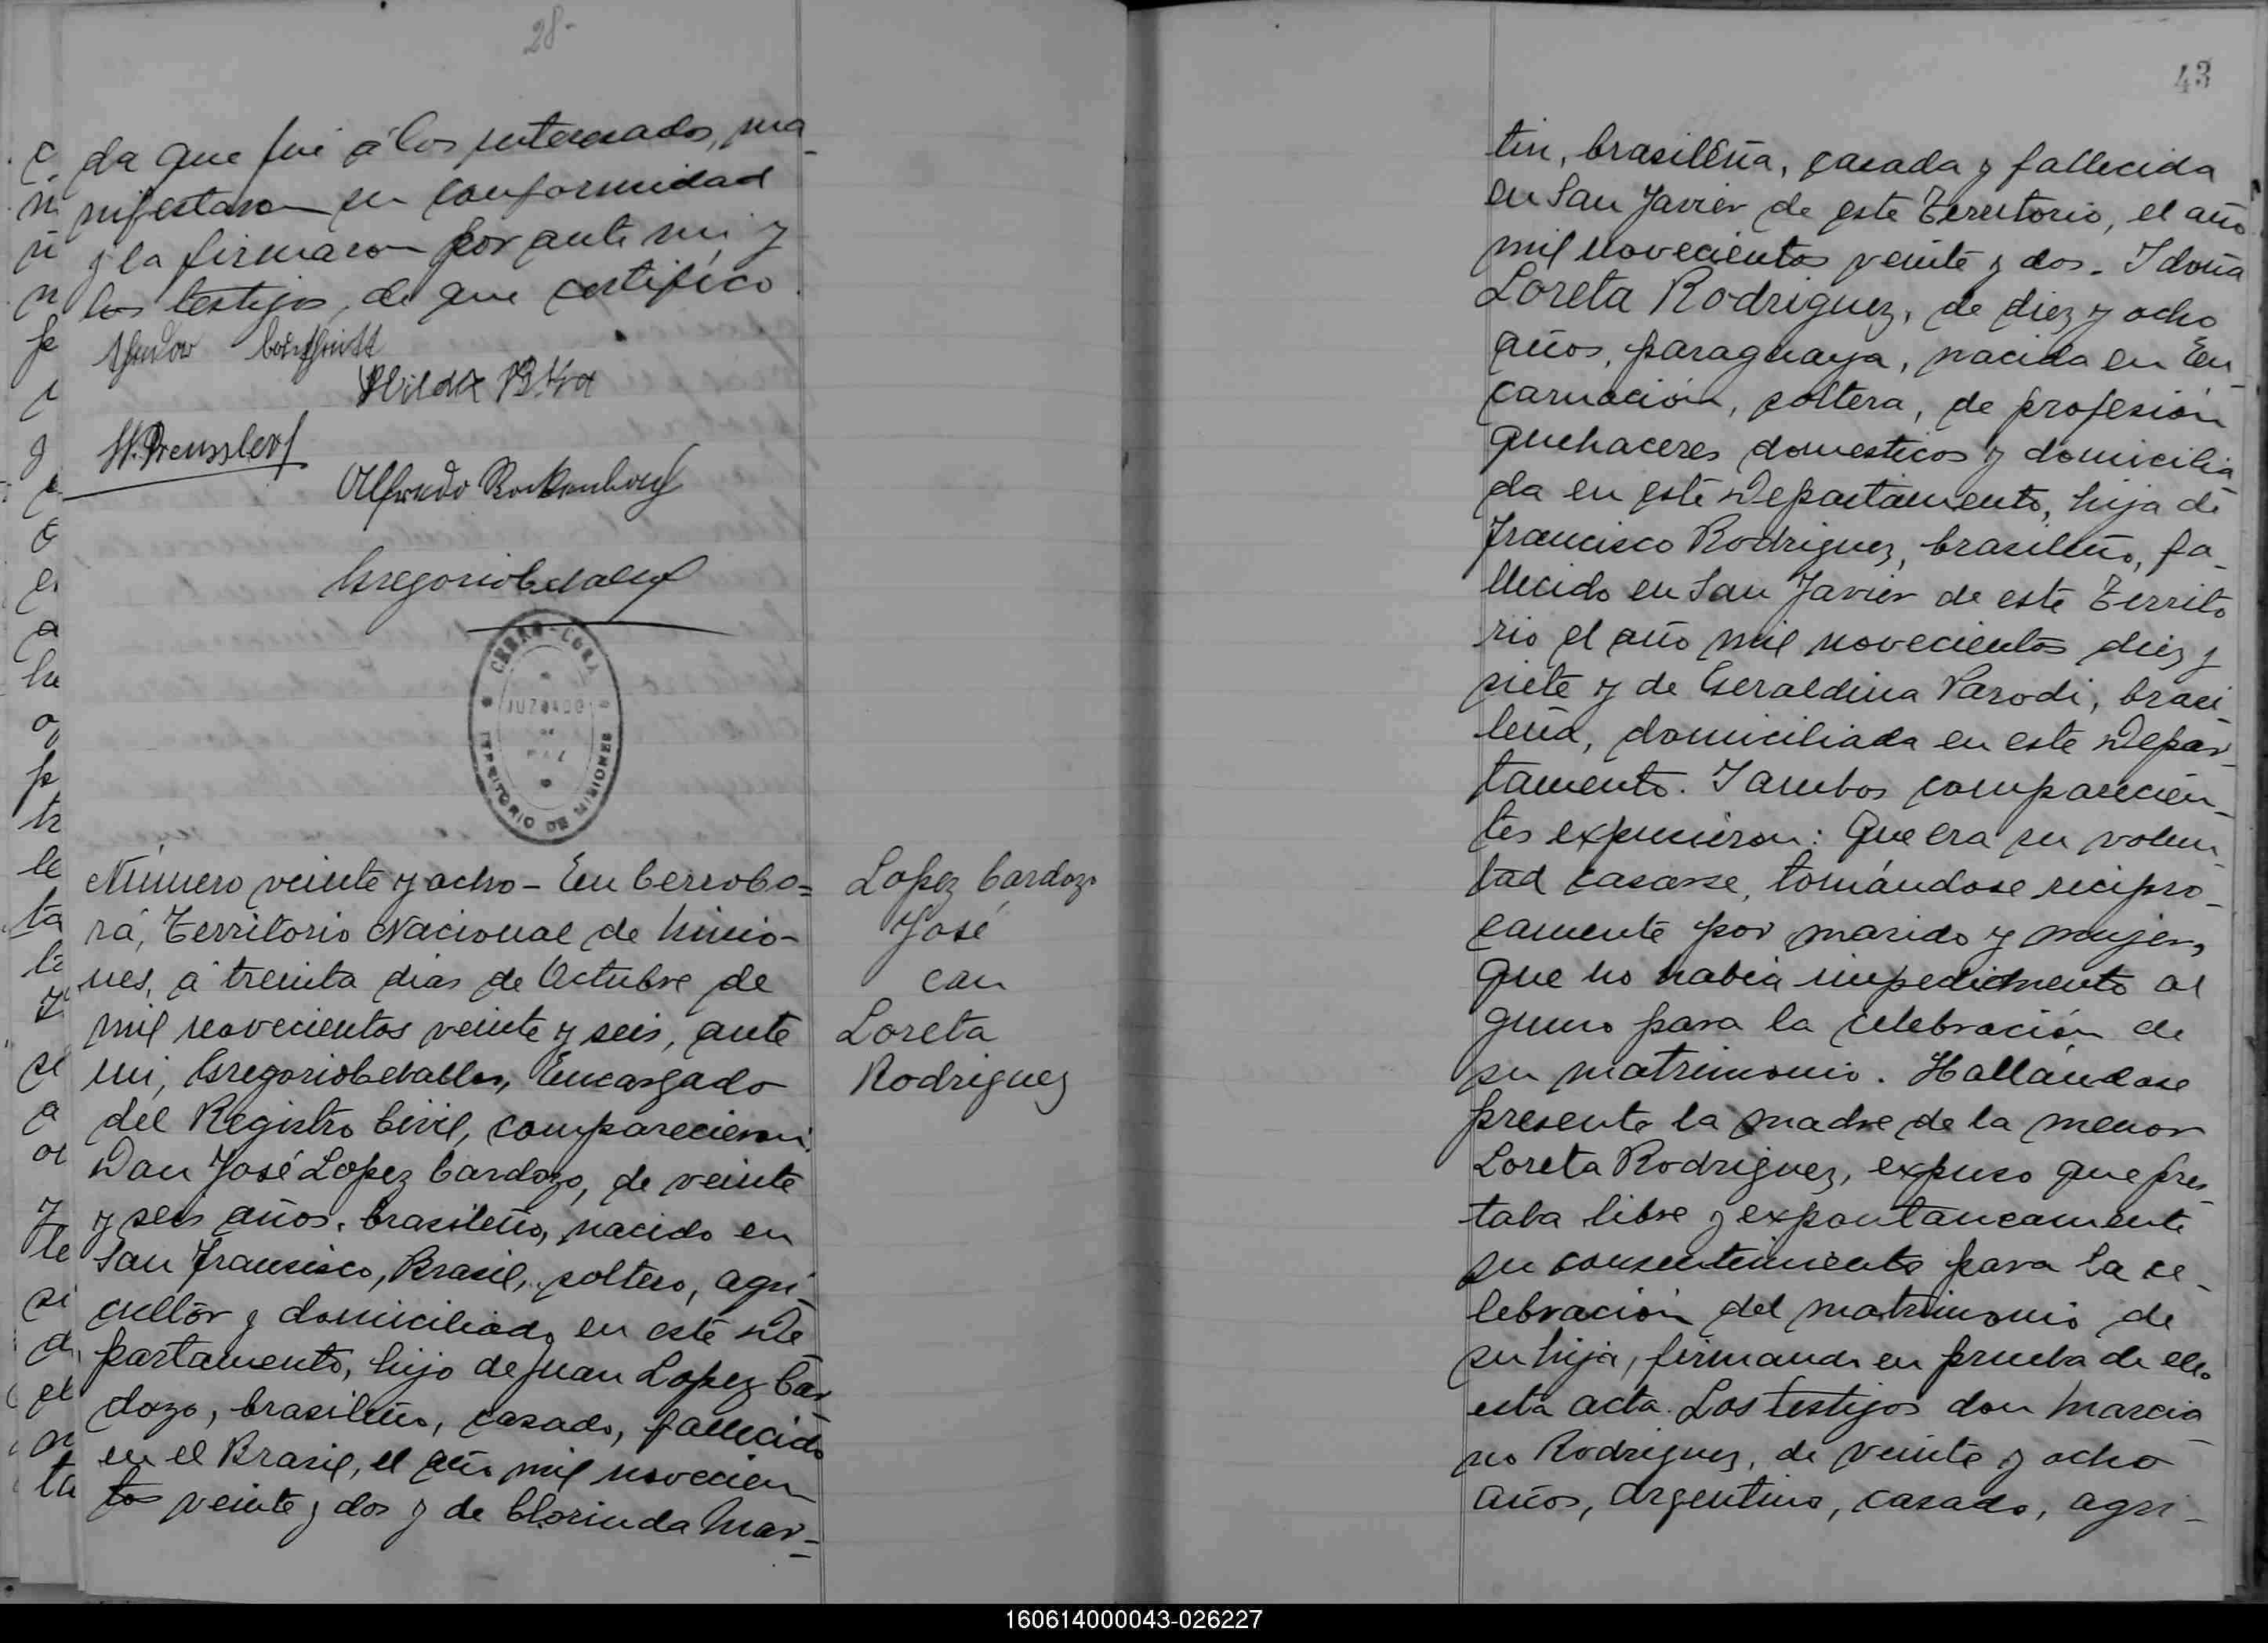 28-
da que fué á los interesados, ma-
nifestaron su conformidad
y la firmaron por ante mi y
los testigos, de que certifico.
Hilda
W. Preussler
Alfredo Rockenbach
Gregorio Cevallos
CERRO-CORÁ
JUZGADO
DE
PAZ
TERRITORIO DE MISIONES
Número veinte y ocho - En Cerro Co=
rá, Territorio Nacional de Misio-
nes, á treinta dias de Octubre de
mil novecientos veinte y seis, ante
mi, Gregorio Cevallos, Encargado
del Registro Civil, comparecieron:
Don José Lopez Cardozo, de veinte
y seis años, brasileño, nacido en
San Francisco, Brasil, soltero, agri-
cultor y domiciliado en este De
partamento, hijo de Juan Lopez Car
dozo, brasileño, casado, fallecido
en el Brasil, el año mil novecien
tos veinte y dos y de Clorinda Mar=
Lopez Cardozo
José
con
Loreta
Rodriguez
43
tin, brasileña, casada y fallecida
en San Javier de este Territorio, el año
mil novecientos veinte y dos. I doña
Loreta Rodriguez, de diez y ocho
años, paraguaya, nacida en En-
carnación, soltera, de profesión
quehaceres domesticos y domicilia
da en este Departamento, hija de
Francisco Rodriguez, brasileño, fa-
llecido en San Javier de este Territo
rio el año mil novecientos diez y
siete y de Geraldina Parodi, brasi-
leña, domiciliada en este Depar-
tamento. I ambos comparecien-
tes expusieron: Que era su volun-
tad casarse, tomándose recipro-
camente por marido y mujer,
que no habia impedimento al
guno para la celebración de
su matrimonio. Hallándose
presente la madre de la menor
Loreta Rodriguez, expuso que pres-
taba libre y expontaneamente
su consentimiento para la ce-
lebración del matrimonio de
su hija, firmando en prueba de ello
esta acta. Los testigos don Marcia
no Rodriguez, de veinte y ocho
años, argentino, casado, agri-
160614000043-026227